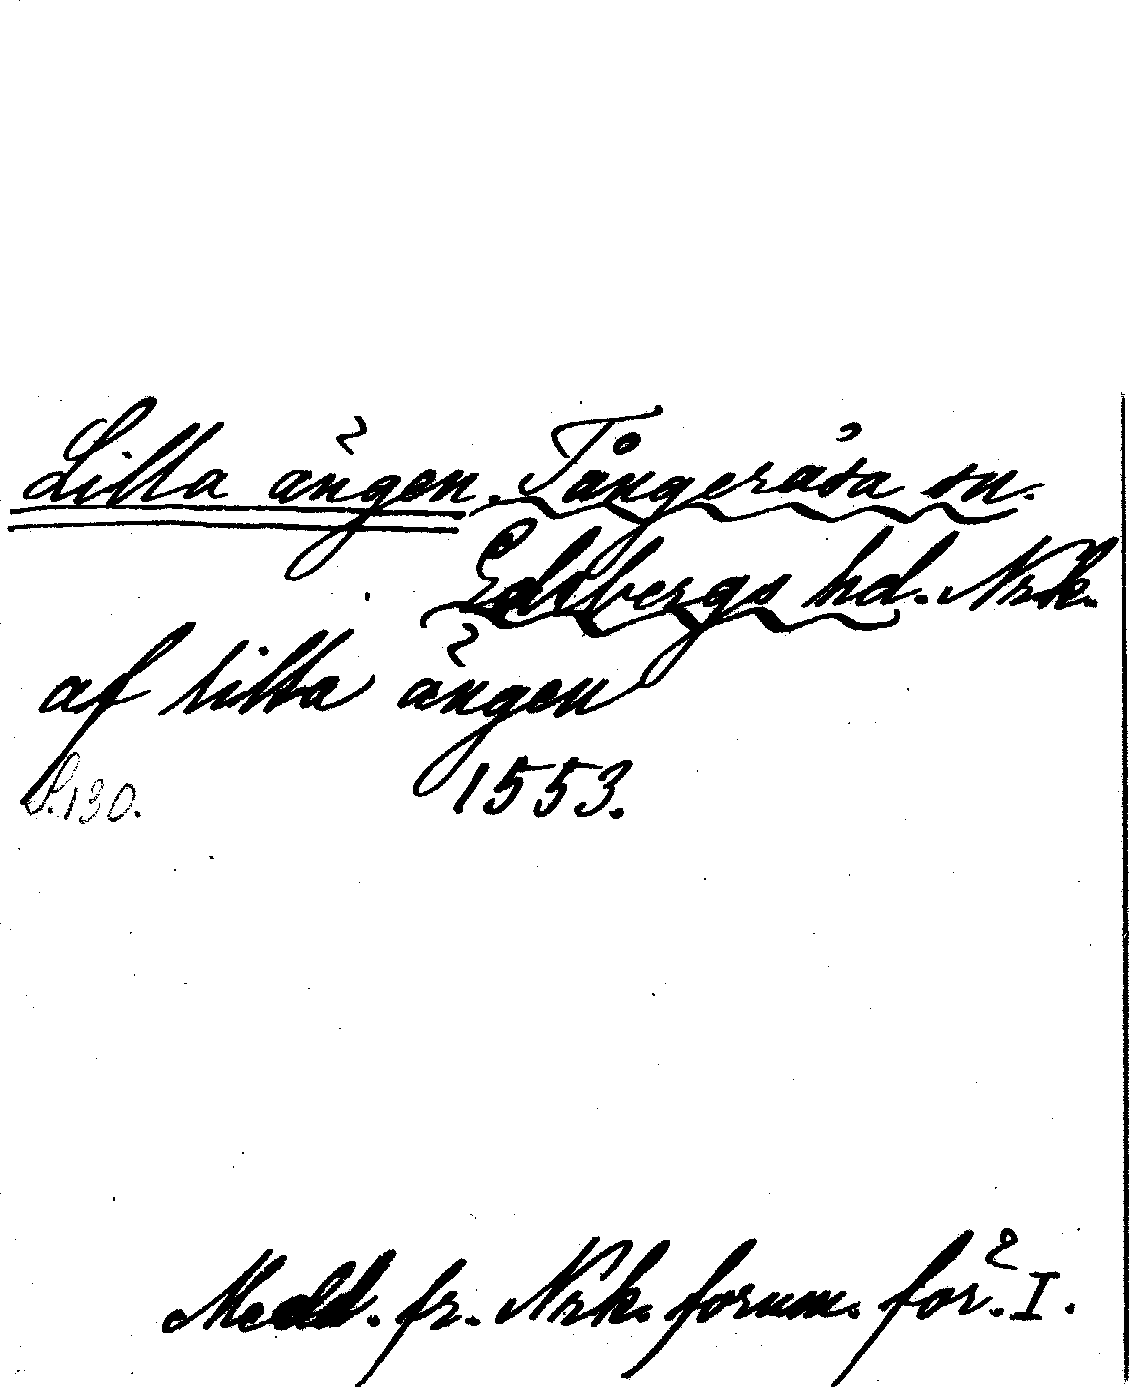 Lilla ängen. Tångeråsa sn.
Edsbergs hd. Nrk.
af lilla ängen
S. 130. 1553.
Medd. fr. Nrk. fornm. för. I.